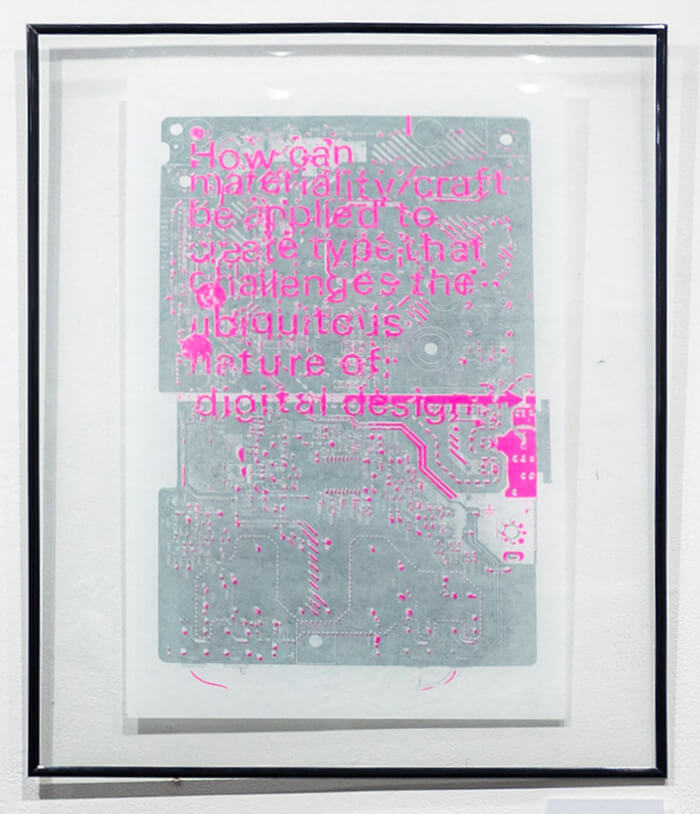 How can
materiality/craft
be applied to
create type that
challenges the
ubiquitous
nature of
digital design